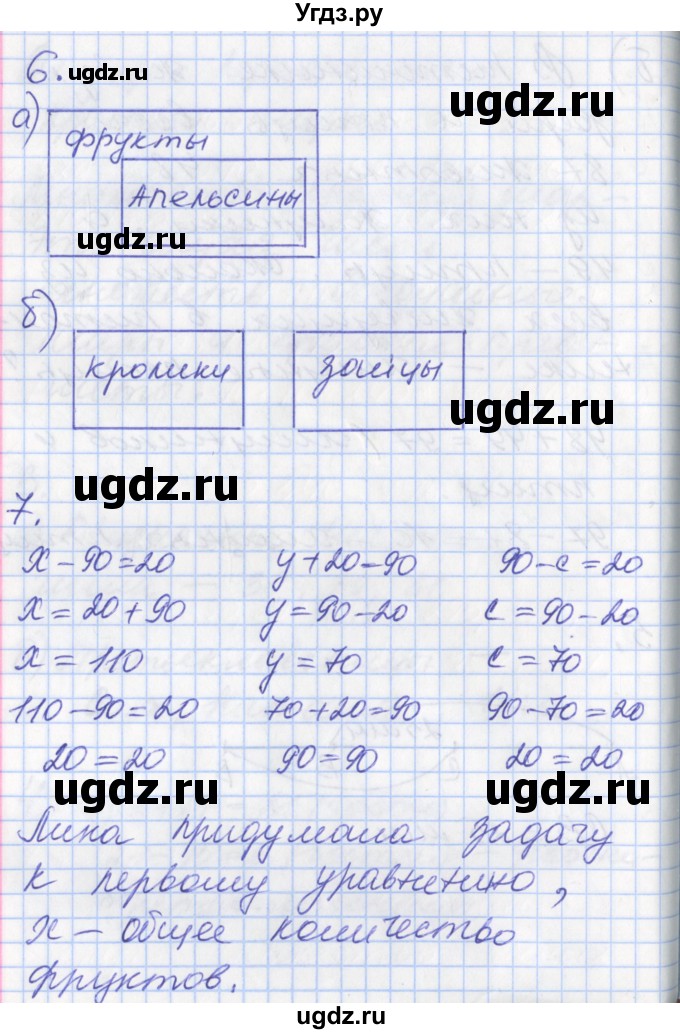 Угдз.ру
6. ugdz.ru
ugdz.ru
а)
фрукты
Апельсины
ugdz.ru
б)
кролики зайцы
ugdz.ru
ugdz.ru
7.
x - 90 = 20 y + 20 = 90 90 - c = 20
x = 20 + 90 y = 90 - 20 c = 90 - 20
x = 110 y = 70 c = 70
110 - 90 = 20 70 + 20 = 90 90 - 70 = 20
20 = 20 90 = 90 20 = 20
ugdz.ru ugdz.ru
Лика придумала задачу
к первому уравнению,
x - общее количество
фруктов.
ugdz.ru